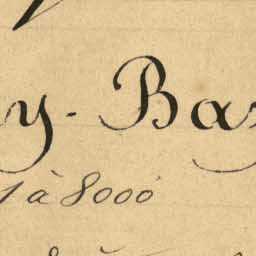 y-Bas
1 à 8000